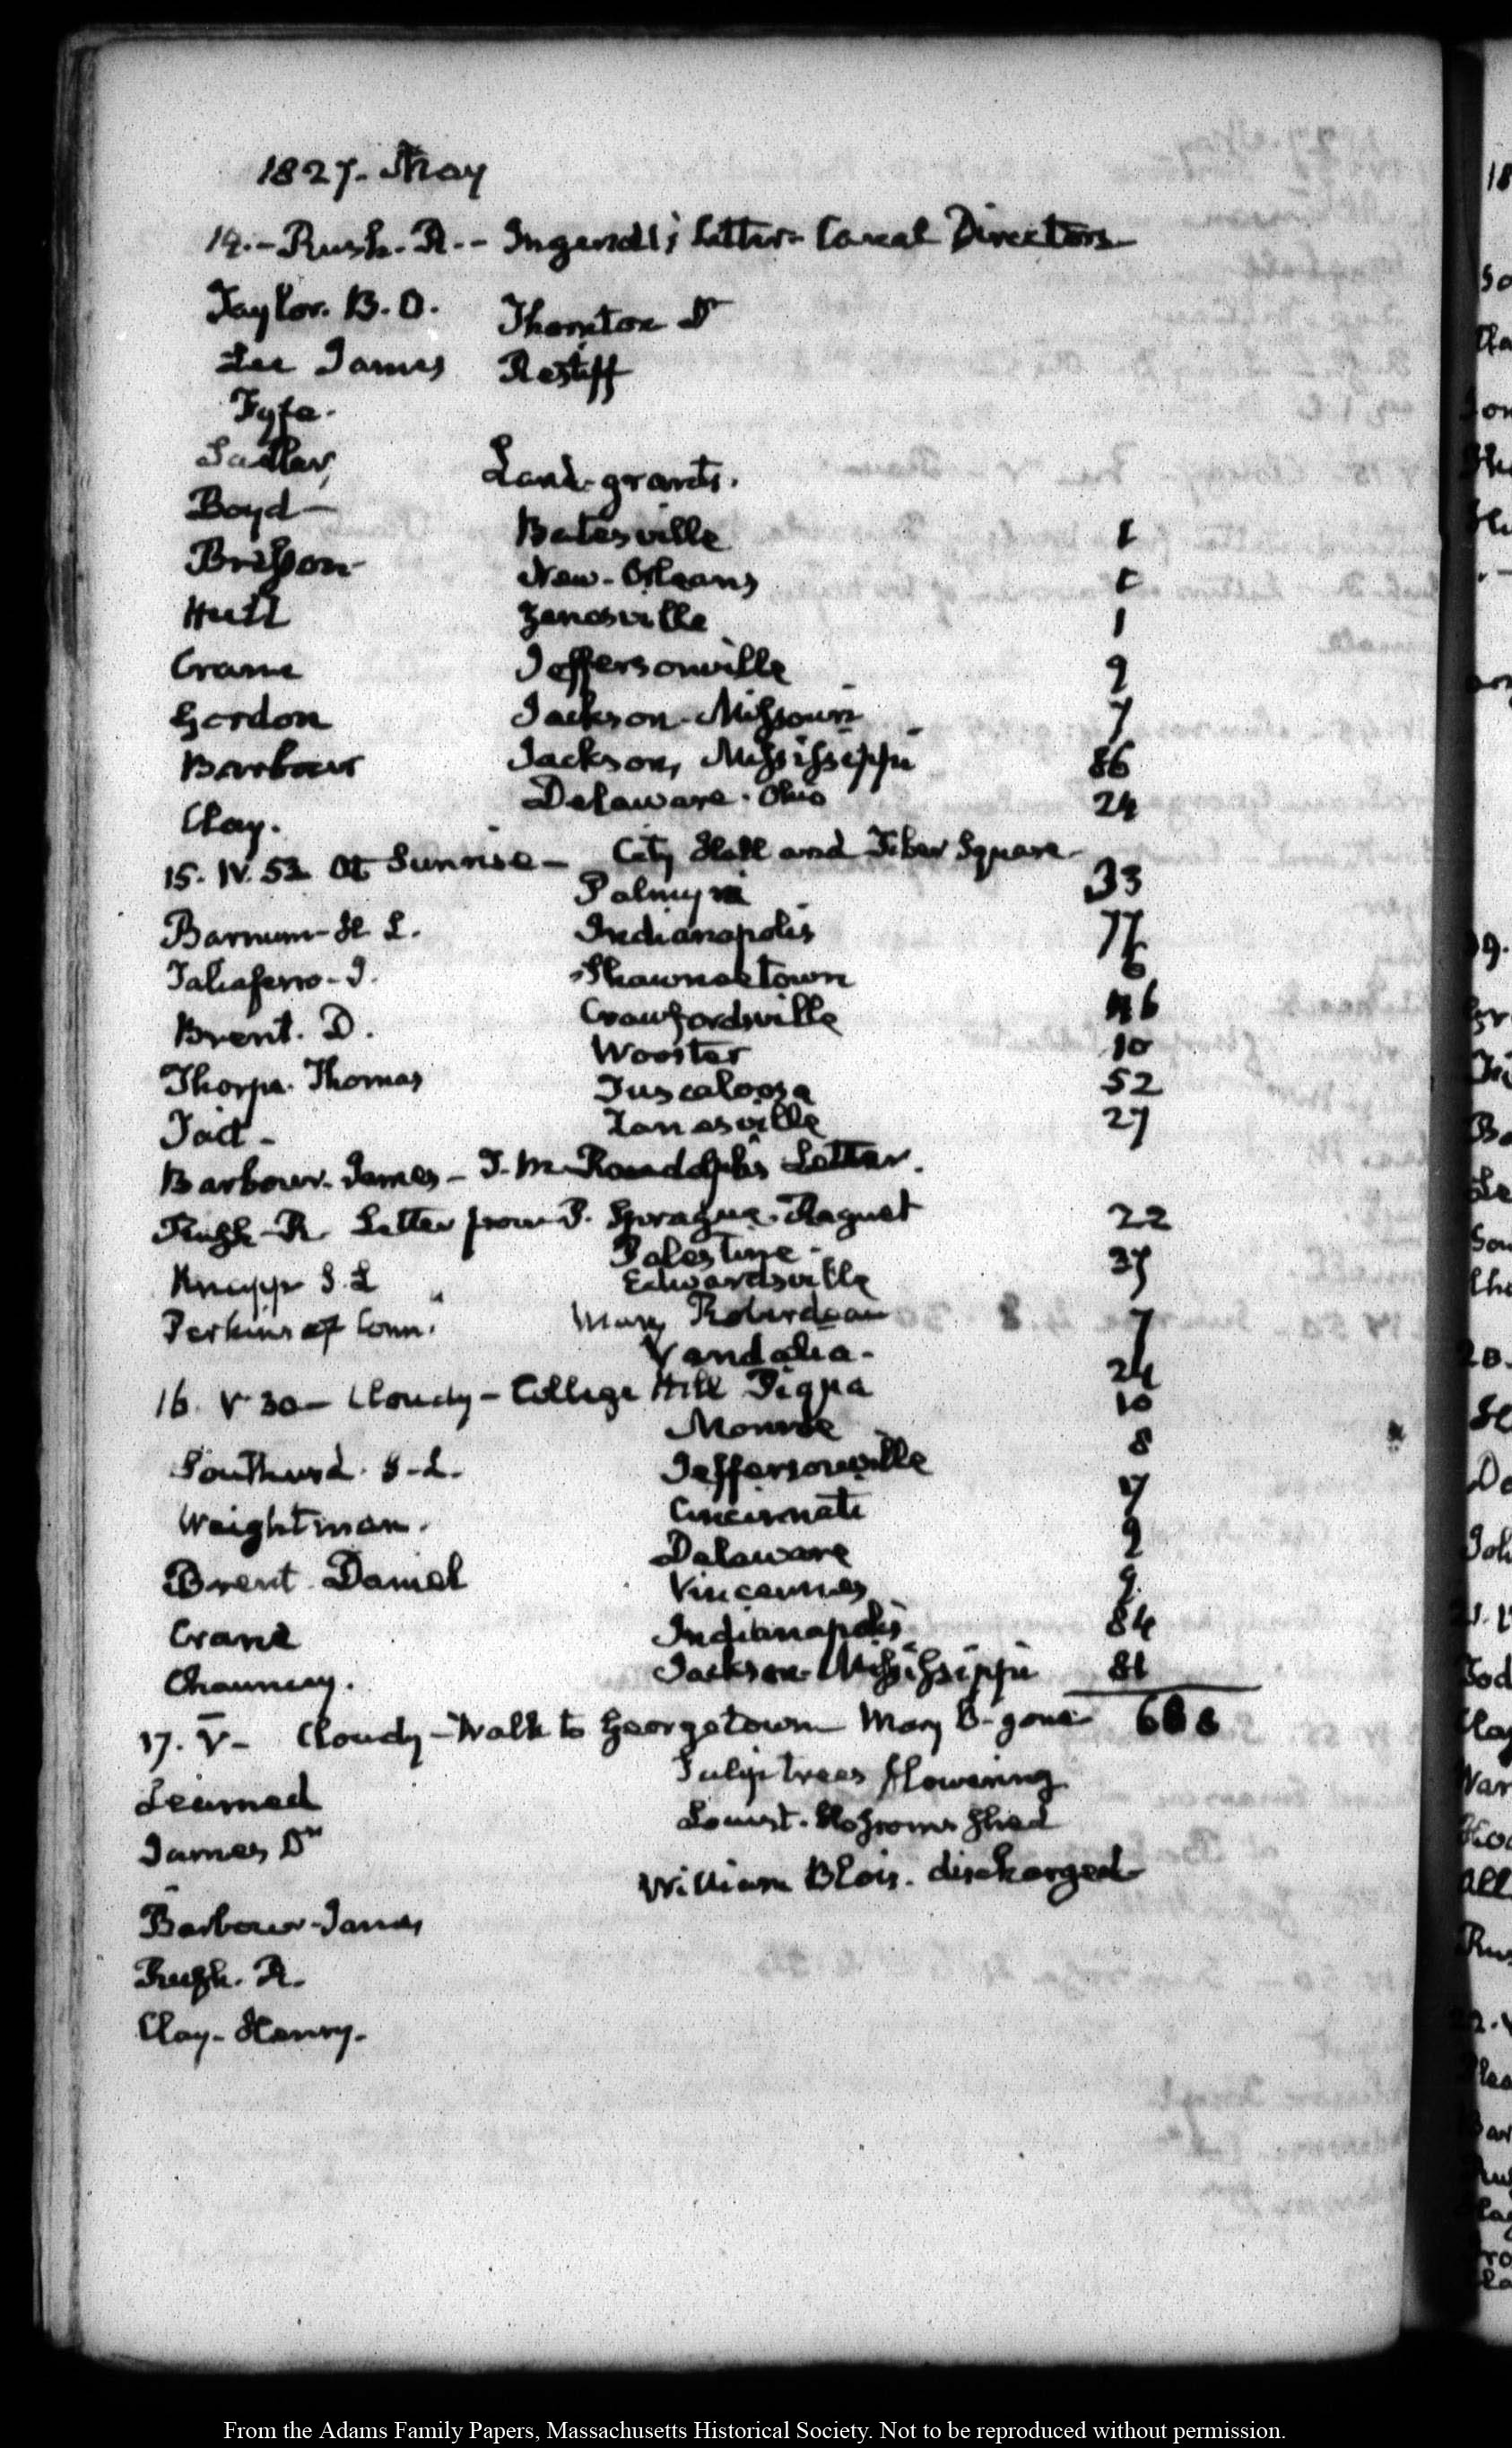 1827. May
14.- Rush. R.- Ingersoll's letter- Canal Directors
Taylor. B. O. Thornton Dr
Lee James Restiff
Fyfe.
Sadler, Land-grants.
Boyd-
Batesville 1
Brisson-
New-Orleans 1
Hull Zanesville 1
Crane Jeffersonville 9
Gordon Jackson-Missouri 7
Barbour Jackson, Mississippi 86
Delaware. Ohio 24
Clay.
15. IV. 52 At Sunrise- City Hall and Tiber Square
Palmyra 33
Barnum- H. L. Indianapolis 77
Taliaferro- J. Shawneetown 6
Crawfordsville 146
Brent. D.
Wooster 10
Thorpe. Thomas Tuscaloosa 52
Tait- Zanesville 27
Barbour. James- T. M. Randolph's Letter.
Rush- R. Letter from P. Sprague. Raguet
Palestine- 22
Knapp S. L Edwardsville 37
Perkins of Conn. Mary Roberdeau
Vandalia- 7
16. V 30- Cloudy- College Hill Piqua 24
Monroe 10
Southard. S-L. Jeffersonville 8
Weightman. Cincinnati 17
Delaware 9
Brent. Daniel Vincennes 9
Crane Indianapolis 84
Chauncey. Jackson- Mississippi 81
17. V- Cloudy- Walk to Georgetown Mary B- gone 688
Tulip trees flowering
Learned
Locust. blossoms shed
James Dr
William Blois. discharged
Barbour- James
Rush. R.
Clay- Henry.
From the Adams Family Papers, Massachusetts Historical Society. Not to be reproduced without permission.